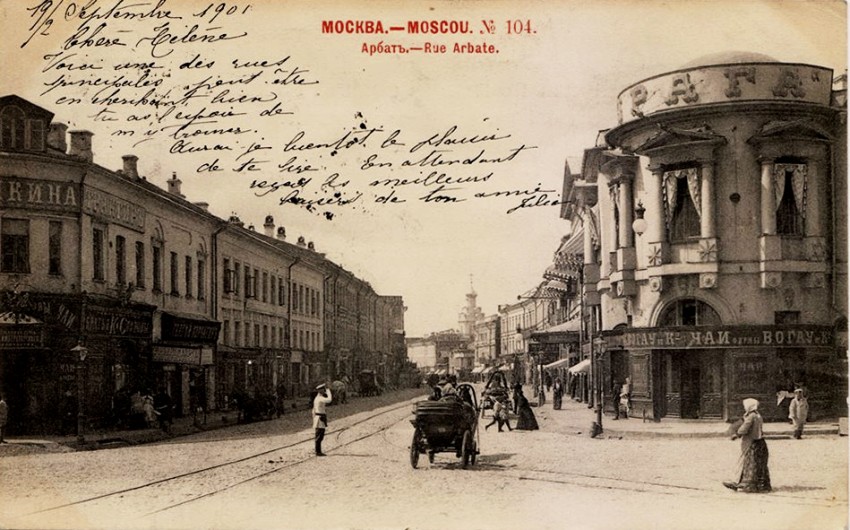 19/2 Septembre 1901
МОСКВА.—MOSCOU. № 104.
Арбатъ.—Rue Arbate.
Chère Hélène
Voici une des rues
principales, peut être
en cherchant bien
tu as l'espoir de
m'y trouver.
Aurai-je bientôt le plaisir
de te lire. En attendant
reçois les meilleurs
baisers de ton amie
Julia
ПРАГА
КИНА
ЧАИ
ВОГАУ и К